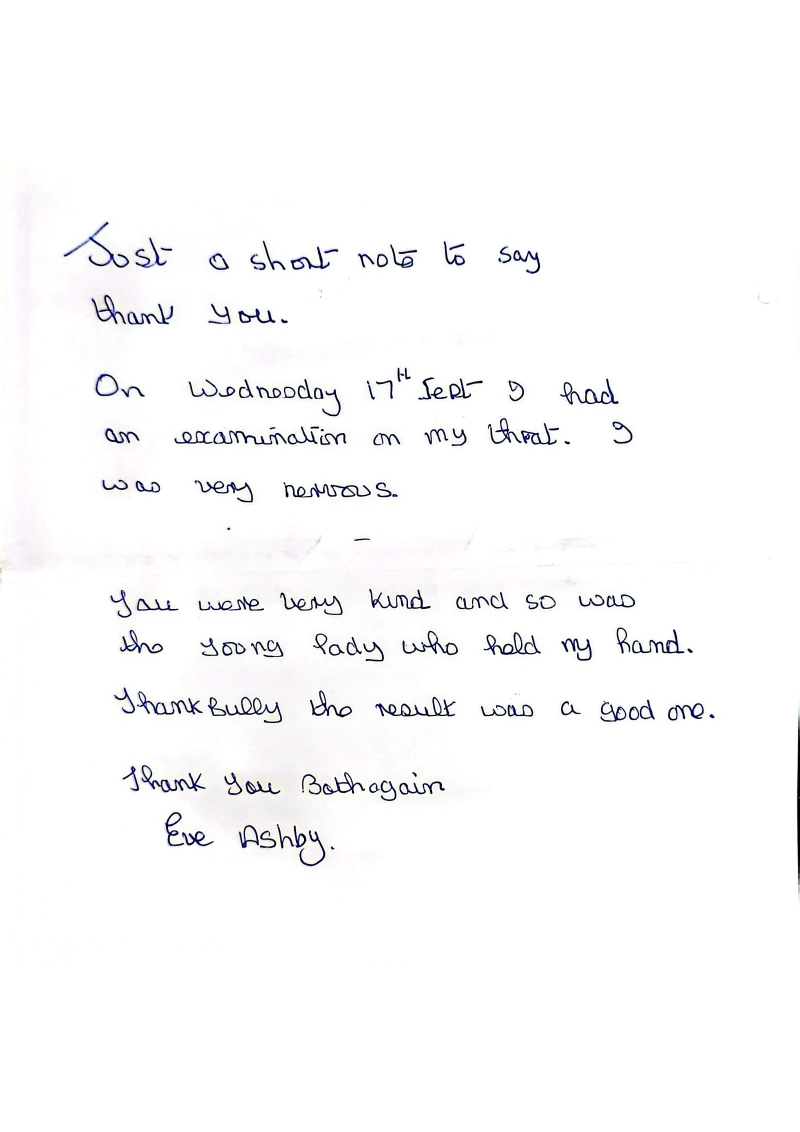 Just a short note to say
thank you.
On Wednesday 17th Sept I had
an examination on my throat. I
was very nervous.
You were very kind and so was
the young lady who held my hand.
Thankfully the result was a good one.
Thank you Both again
Eve Ashby.